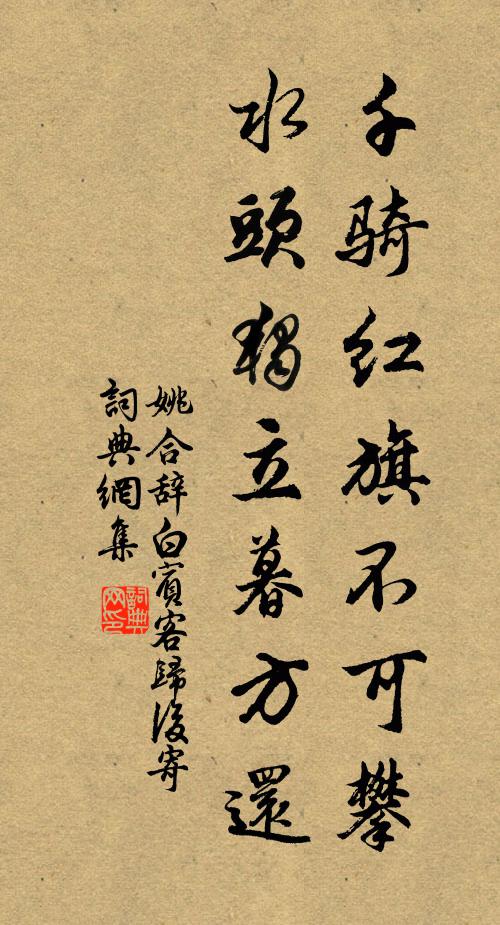 千骑红旗不可攀
水頭獨立暮方還
姚合辞白賓客歸後寄
詞典網集
詞典
网印